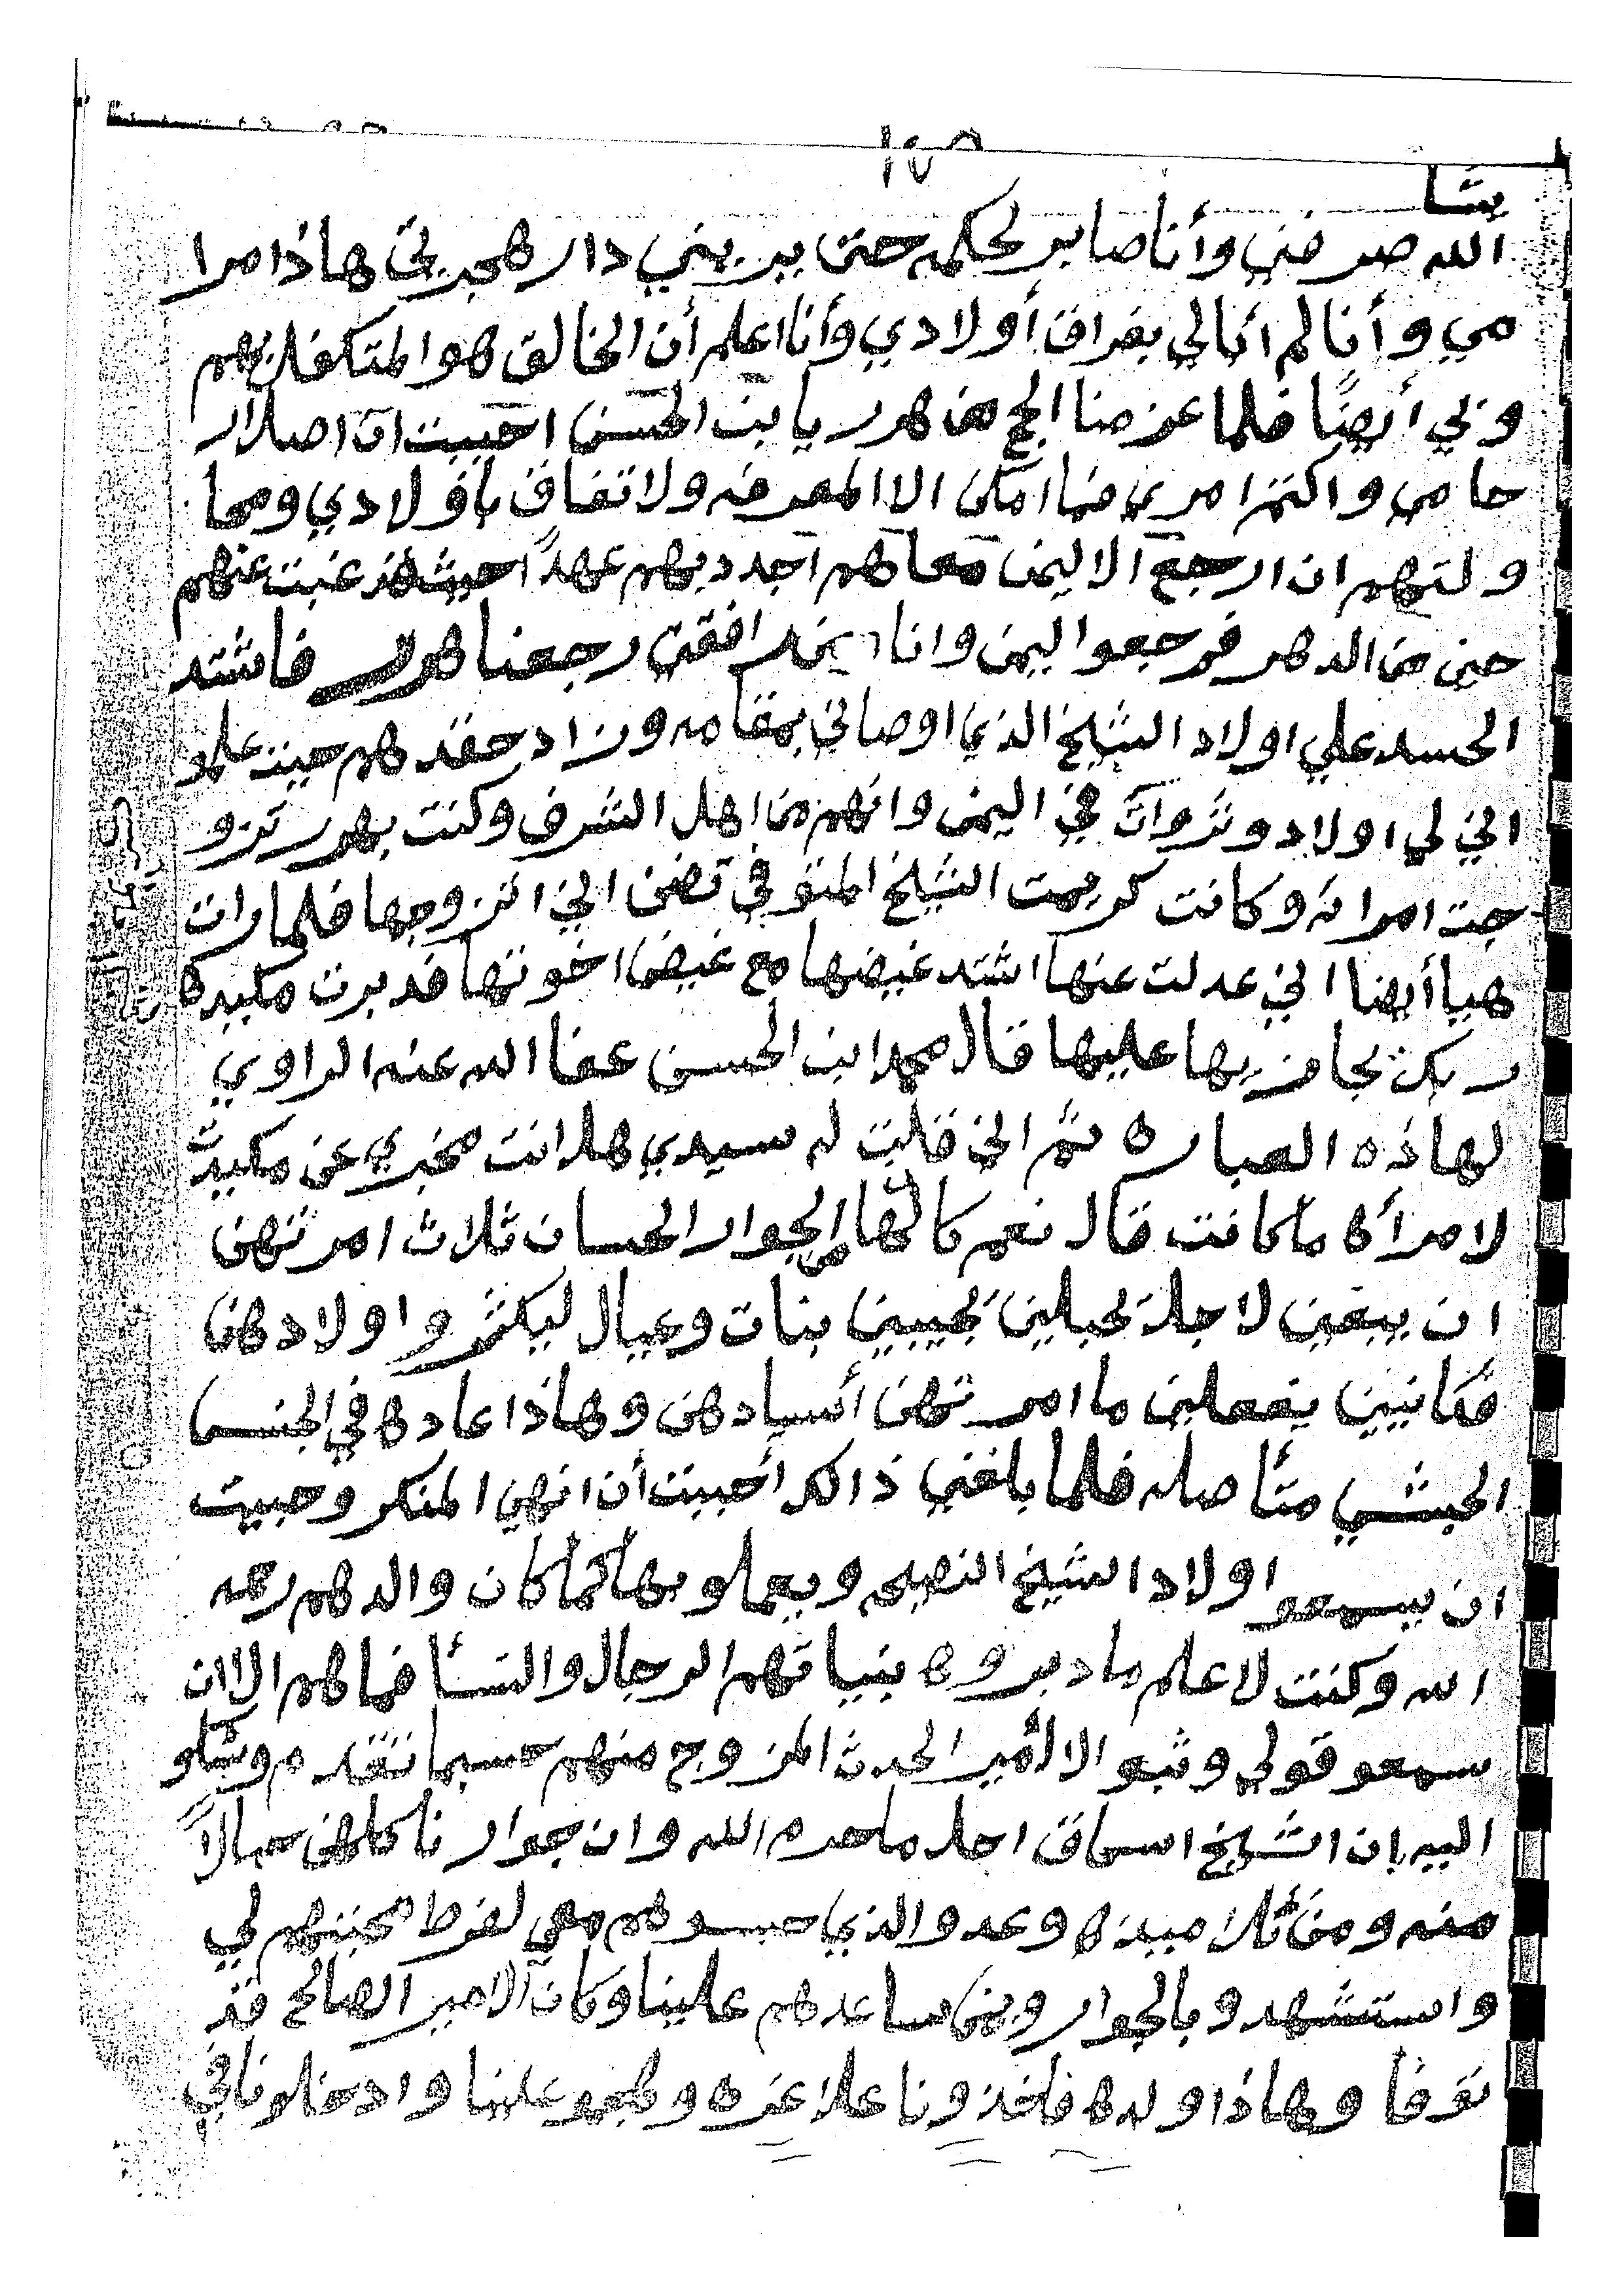 ١٤٥
يشا
الله صرفني وأنا صابر لحكمه حتى يريني دار هجرتي هاذا مرا
مي وأنا لم أبالي بفراق أولادي وأنا اعلم أن الخالق هو المتكفل بهم
وبي أيضًا فلما عزمنا الحج من هرر يابن الحسن احببت ان اصل ار
حامي واكتم امري فما امكن الا المعرفه ولا تفاق بأولادي ومحا
ولتهم ان ارجع الا اليمن معاهم اجدد بهم عهدًا حيث قد غبت عنهم
حين من الدهر فرجعوا اليمن وانا رافقتي رجعنا هرر فاشتد
الحسد علي اولاد الشيخ الذي اوصاني بمقامه وزاد حقد لهم حيث علمو
اني لي اولاد وثروات في اليمن وانهم من اهل الشرف وكنت بهرر تزو
جت امراته وكانت كريمت الشيخ المتوفي تضن اني اتزوجها فلما رات
هيا أيضا اني عدلت عنها اشتد غيضها مع غيض اخوتها فدبرت مكيده
ربك يجازيها عليها قال محمد ابن الحسن عفا الله عنه الراوي
لهاذه العباره ثم اني قلت له سيدي هل انت مخبري عن مكيدت
لامرأه ما كانت قال نعم كا لها من الجوار الحسان ثلاث امرتهن
ان يبغين لاجل يحبلين يجيبين بنات وعيال ليكثرو اولادهن
فكانيين يفعلين ما امرتهن أسيادهن وهاذا عاده في الجنس ا
الحبشي متأصله فلما بلغني ذالك أحببت أن انهي المنكر وحبيت
ان يسمعو اولاد الشيخ النصيحه ويعملو بها كما كان والدهم رحمه
الله وكنت لا علم ما دبروه بنياتهم الرجال والنسأ فما لهم الا ان
سمعو قولي وثبو الا الأمير الحدث المزوج منهم حسبما تقدم وشكو
اليه ان الشيخ اسحاق احل ما حرم الله وان جوارنا كلهن حبالاً
منه ومن تلاميذه وعدو الذي حسبوهم معي لفرط محبتهم لي
واستشهدو بالجوار وبمن ساعدهم علينا وكان الامير الصالح قد
توفا وهاذا ولده فاخذونا علا غره وطبو علينا وادخلونا في